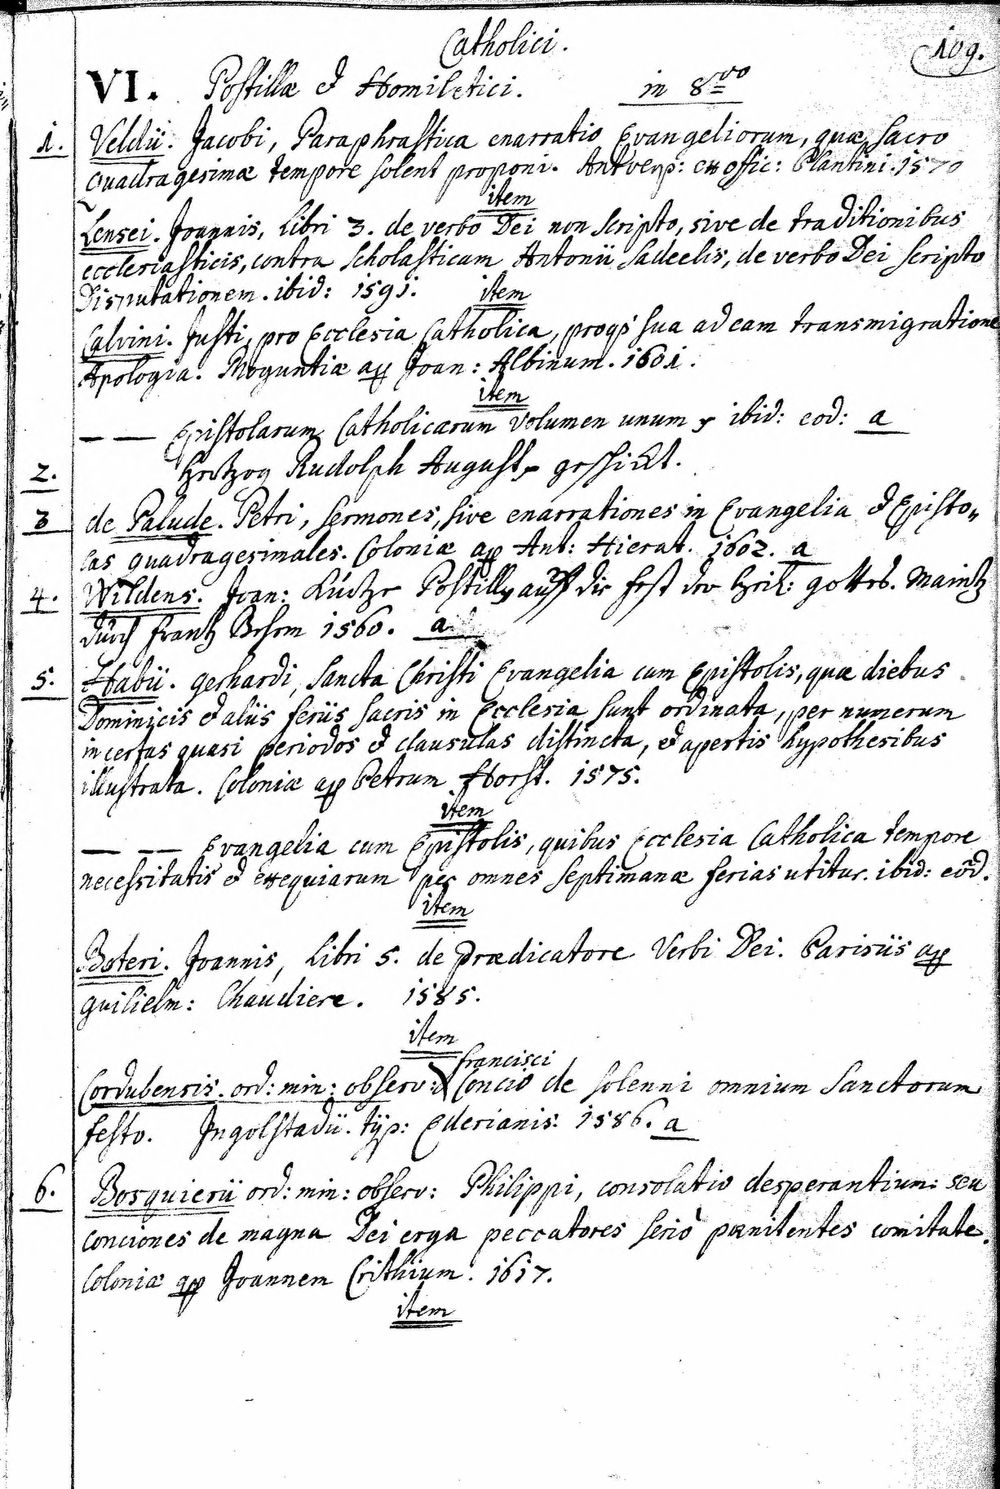 Catholici.
109.
VI. Postillæ et Homiletici. in 8vo
1. Veldii. Jacobi, Paraphrastica enarratio Evangeliorum, quæ sacro
Quadragesimæ tempore solent proponi. Antverp: ex offic: Plantini. 1570
item
Lensei. Joannis, Libri 3. de verbo Dei non scripto, sive de traditionibus
ecclesiasticis, contra scholasticam Antonii Sadeelis, de verbo Dei scripto
Disputationem. ibid: 1591. item
Calvini. Justi, pro Ecclesia Catholica, proqs sua ad eam transmigratione
Apologia. Moguntiæ ap Joan: Albinum. 1601.
item
— — Epistolarum Catholicarum Volumen unum ibid: eod: a
2. Hertzog Rudolph August geschickt.
3 de Palude. Petri, sermones, sive enarrationes in Evangelia et Episto„
las quadragesimales. Coloniæ ap Ant: Hierat. 1602. a
4. Wildens. Joan: Kurtze Postill auff die fest der Heil: gottes. Maintz
durch Frantz Behem 1560. a
5. Habii. Gerhardi, Sancta Christi Evangelia cum Epistolis, quæ diebus
Dominicis et aliis feriis sacris in Ecclesia sunt ordinata, per numerum
in certas quasi periodos et clausulas distincta, et apertis hypothesibus
illustrata. Coloniæ ap Petrum Horst. 1575.
item
— — Evangelia cum Epistolis, quibus Ecclesia Catholica tempore
necessitatis et exequiarum per omnes septimanæ ferias utitur. ibid: eod.
item
Boteri. Joannis, Libri 5. de prædicatore Verbi Dei. Parisiis ap
Guilielm: Chaudiere. 1585.
item
Francisci
Cordubensis. ord: min: observ: Concio de solenni omnium Sanctorum
festo. Ingolstadii. typ: Ederianis. 1586. a
6. Bosquierii ord: min: observ: Philippi, consolatio desperantium: seu
conciones de magna Dei erga peccatores seriò pœnitentes comitate.
Coloniæ ap Joannem Crithium. 1617.
item